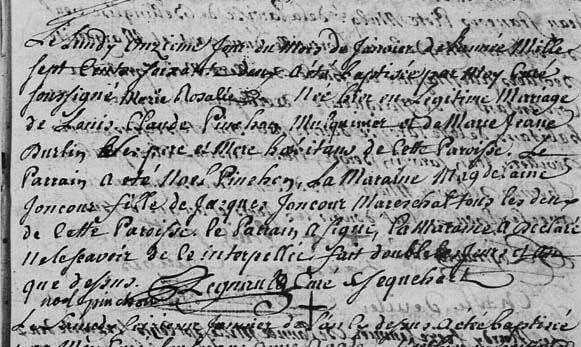 Le Lundy onzieme Jour du Mois de Janvier de L'année Mille
sept Cents Soixante deux a été Baptisée par Moy Curé
soussigné Marie Rosalie Née hier en Legitime Mariage
de Louis Claude Pinchon et de Marie Jeane
Durlin ses pere et Mere habitans de Cette Paroisse, Le
Parrain a été Noel Pinchon, La Maraine Magdelaine
Joncour fille de Jacques Joncour Mareschal tous les deux
de Cette Paroisse, le Parrain a signé, la Maraine a declaré
ne le scavoir de ce interpellée, fait double les Jours et an
que dessus. Curé
noel pinchon
Janvier de L'an dessus a été baptisé